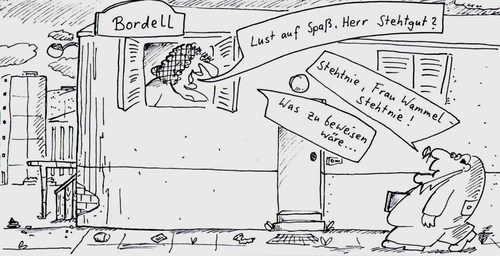 Bordell
Lust auf Spaß, Herr Stehtgut?
Stehtnie, Frau Wammel
Stehtnie!
Was zu beweisen
wäre...